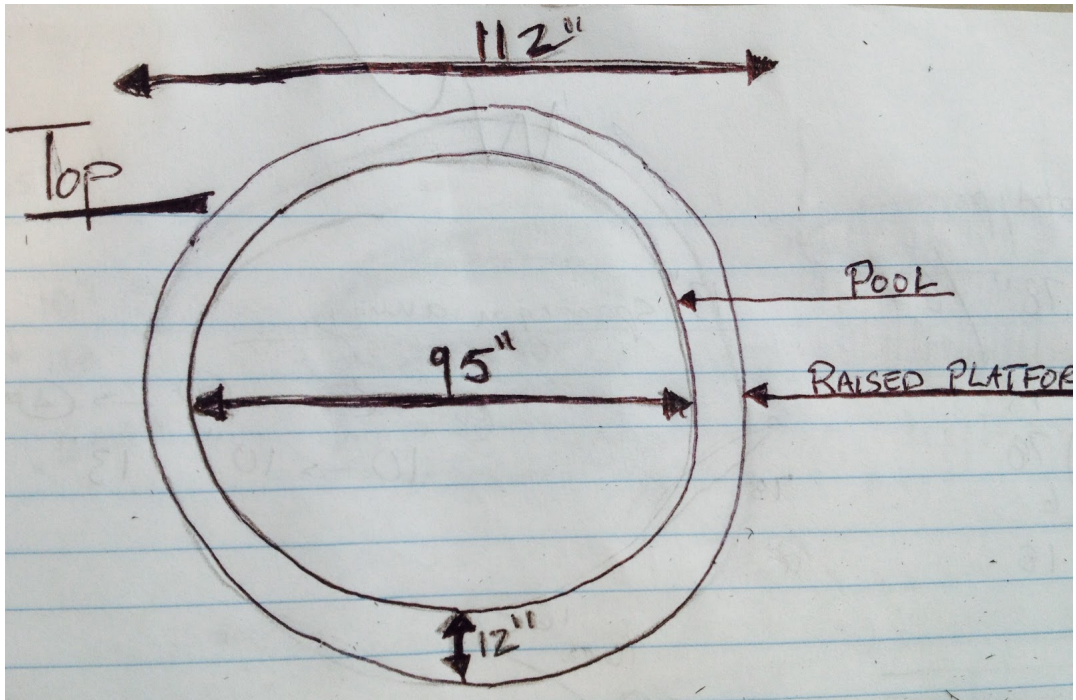 112"
Top
POOL
95"
RAISED PLATFOR
12"